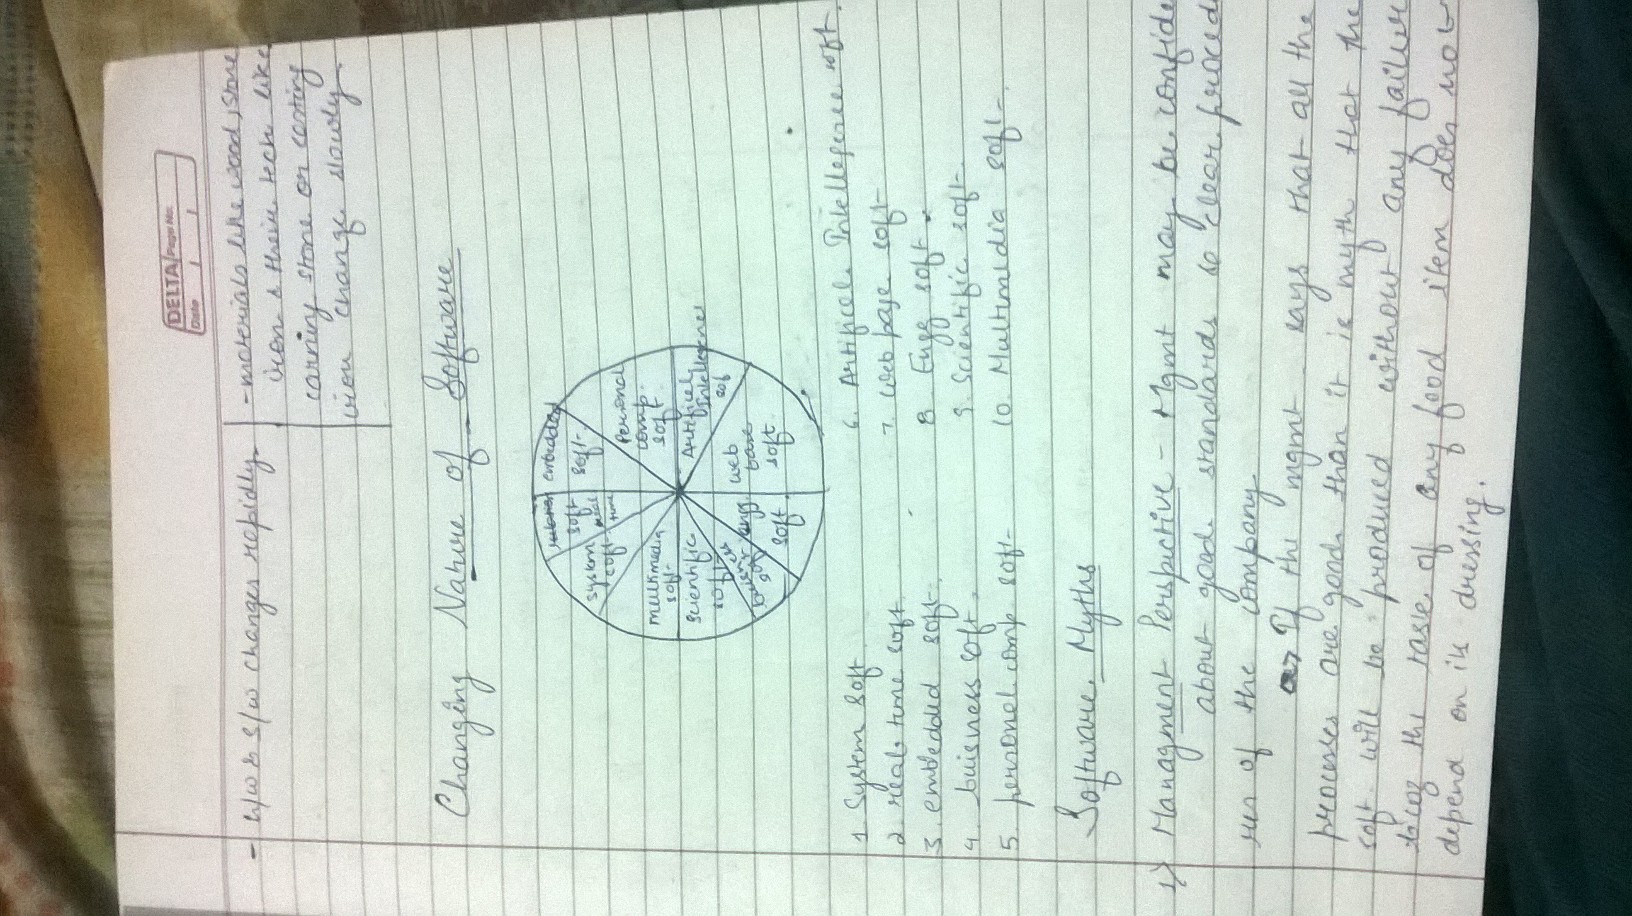 DELTA/Page No.
Date
- h/w & s/w changes rapidly.
- materials like wood, stone
iron & their tech like
carning stone or casting
iron change slowly.
Changing Nature of Software
embedded soft-
Personal comp. soft.
Artificel Intellegence sof
web base soft
eng. soft.
Scientific soft
multimedia soft-
system soft-
real time
1. System soft.
2. real time soft.
3. embedded soft.
4. buisness soft.
5. personal comp soft-
6. Artificel Intellegence soft.
7. web base soft-
8. Engg soft.
9. Scientific soft-
10. Multimedia soft-.
Software Myths
1) Managment Perspective - Mgmt may be confide
about good standards so clear proced
res of the company.
If the mgmt says that all the
processes are good than it is myth that the
soft will be produced without any failuer
bicoz the tase of any food item does not
depend on it dressing.